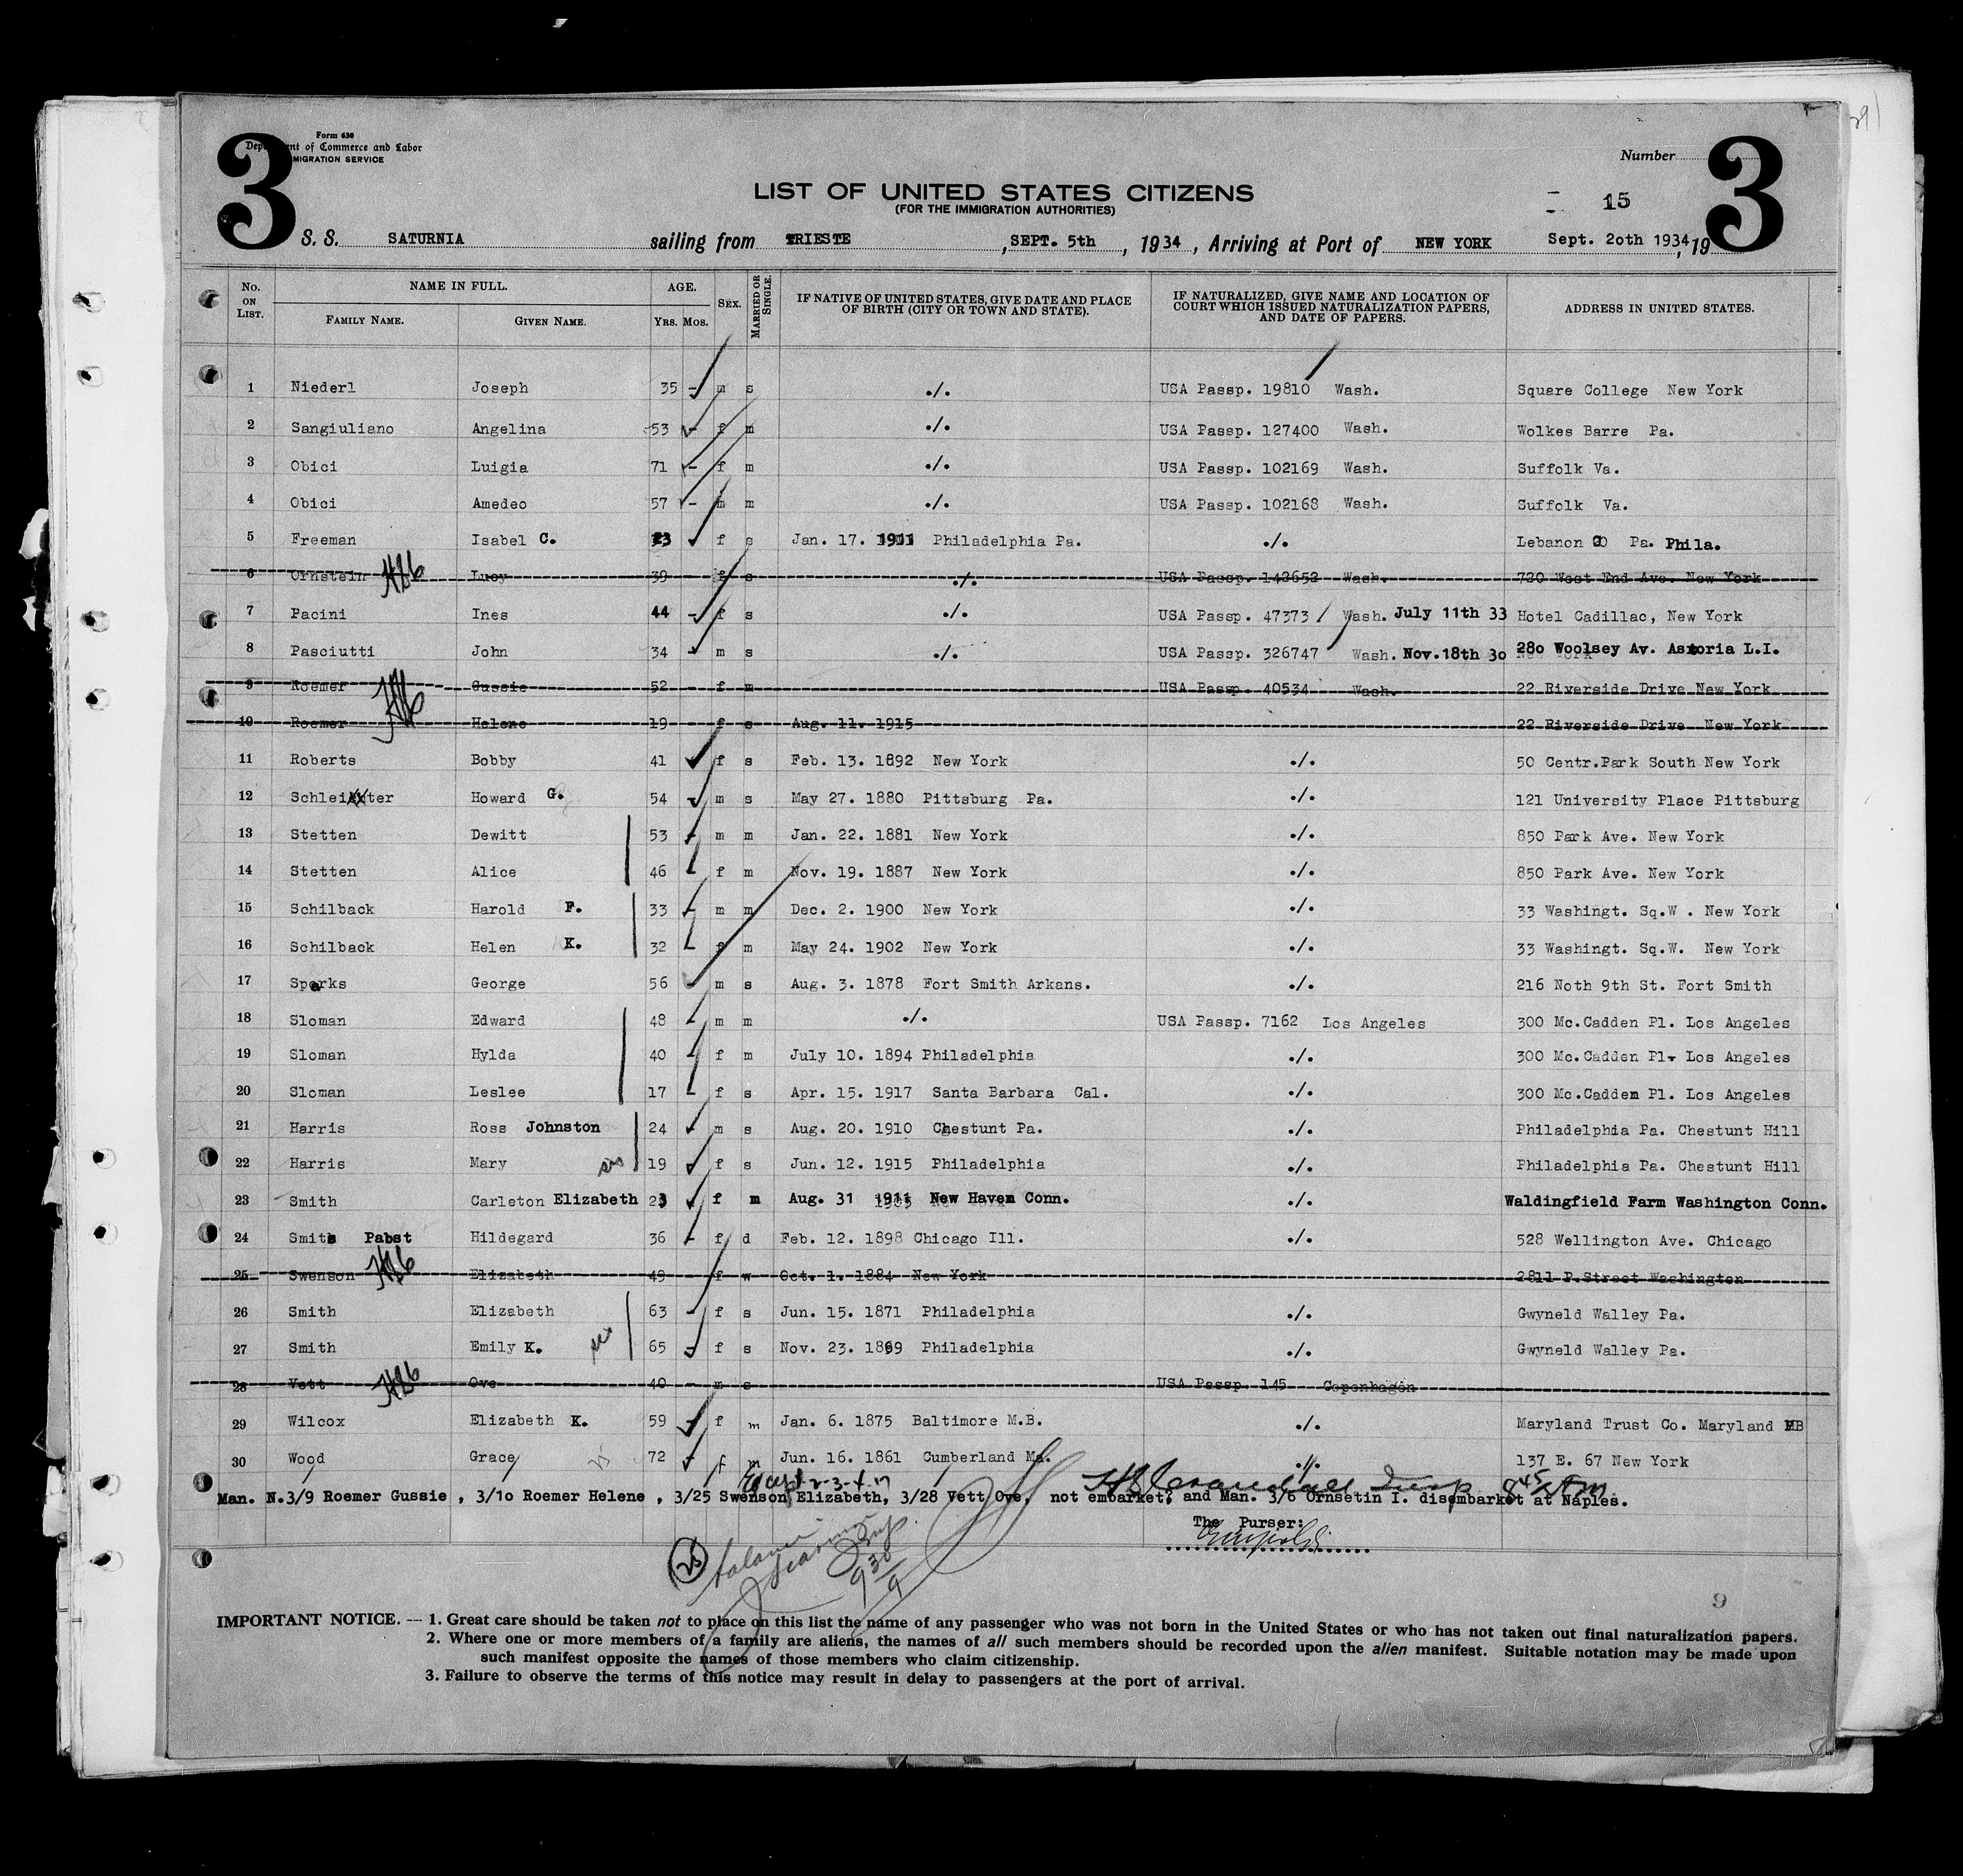 3
Form 630
Department of Commerce and Labor
IMMIGRATION SERVICE
Number
3
LIST OF UNITED STATES CITIZENS
(FOR THE IMMIGRATION AUTHORITIES)
15
S. S. SATURNIA sailing from TRIESTE , SEPT. 5th , 1934 , Arriving at Port of NEW YORK Sept. 2oth 1934 , 19
No. ON LIST. NAME IN FULL. FAMILY NAME. GIVEN NAME. AGE. YRS. MOS. SEX. MARRIED OR SINGLE. IF NATIVE OF UNITED STATES, GIVE DATE AND PLACE OF BIRTH (CITY OR TOWN AND STATE). IF NATURALIZED, GIVE NAME AND LOCATION OF COURT WHICH ISSUED NATURALIZATION PAPERS, AND DATE OF PAPERS. ADDRESS IN UNITED STATES.
1 Niederl Joseph 35 - m s ./. USA Passp. 19810 Wash. Square College New York
2 Sangiuliano Angelina 53 - f m ./. USA Passp. 127400 Wash. Wolkes Barre Pa.
3 Obici Luigia 71 - f m ./. USA Passp. 102169 Wash. Suffolk Va.
4 Obici Amedeo 57 - m m ./. USA Passp. 102168 Wash. Suffolk Va.
5 Freeman Isabel C. 23 f s Jan. 17. 1911 Philadelphia Pa. ./. Lebanon Pa. Phila.
6 Ornstein Lucy 39 f s ./. USA Passp. 142652 Wash. 720 West End Ave. New York
7 Pacini Ines 44 - f s ./. USA Passp. 47373 Wash. July 11th 33 Hotel Cadillac, New York
8 Pasciutti John 34 - m s ./. USA Passp. 326747 Wash. Nov.18th 3o 28o Woolsey Av. Astoria L.I.
9 Roemer Gussie 52 - f m USA Passp. 40534 Wash. 22 Riverside Drive New York
10 Roemer Helene 19 f s Aug. 11. 1915 22 Riverside Drive New York
11 Roberts Bobby 41 - f s Feb. 13. 1892 New York ./. 50 Centr.Park South New York
12 Schleixxter Howard G. 54 - m s May 27. 1880 Pittsburg Pa. ./. 121 University Place Pittsburg
13 Stetten Dewitt 53 - m m Jan. 22. 1881 New York ./. 850 Park Ave. New York
14 Stetten Alice 46 - f m Nov. 19. 1887 New York ./. 850 Park Ave. New York
15 Schilback Harold F. 33 - m m Dec. 2. 1900 New York ./. 33 Washingt. Sq.W . New York
16 Schilback Helen K. 32 - f m May 24. 1902 New York ./. 33 Washingt. Sq.W. New York
17 Sparks George 56 - m s Aug. 3. 1878 Fort Smith Arkans. ./. 216 Noth 9th St. Fort Smith
18 Sloman Edward 48 - m m ./. USA Passp. 7162 Los Angeles 300 Mc.Cadden Pl. Los Angeles
19 Sloman Hylda 40 - f m July 10. 1894 Philadelphia ./. 300 Mc.Cadden Pl. Los Angeles
20 Sloman Leslee 17 - f s Apr. 15. 1917 Santa Barbara Cal. ./. 300 Mc.Cadden Pl. Los Angeles
21 Harris Ross Johnston 24 - m s Aug. 20. 1910 Chestunt Pa. ./. Philadelphia Pa. Chestunt Hill
22 Harris Mary sis 19 - f s Jun. 12. 1915 Philadelphia ./. Philadelphia Pa. Chestunt Hill
23 Smith Carleton Elizabeth 23 - f m Aug. 31 1911 New Haven Conn. ./. Waldingfield Farm Washington Conn.
24 Smith Pabst Hildegard 36 - f d Feb. 12. 1898 Chicago Ill. ./. 528 Wellington Ave. Chicago
25 Swenson Elizabeth 49 f w Oct. 1. 1884 New York 2811 P.Street Washington
26 Smith Elizabeth 63 - f s Jun. 15. 1871 Philadelphia ./. Gwyneld Walley Pa.
27 Smith Emily K. 65 - f s Nov. 23. 1869 Philadelphia ./. Gwyneld Walley Pa.
28 Vett Ove 40 m s USA Passp 145 Copenhagen
29 Wilcox Elizabeth K. 59 - f m Jan. 6. 1875 Baltimore M.B. ./. Maryland Trust Co. Maryland MB
30 Wood Grace 72 - f m Jun. 16. 1861 Cumberland Ma. ./. 137 E. 67 New York
Man. N.3/9 Roemer Gussie , 3/1o Roemer Helene , 3/25 Swenson Elizabeth, 3/28 Vett Ove, not embarket; and Man. 3/6 Ornsetin I. disembarket at Naples.
The Purser:
25
9
IMPORTANT NOTICE. — 1. Great care should be taken not to place on this list the name of any passenger who was not born in the United States or who has not taken out final naturalization papers.
2. Where one or more members of a family are aliens, the names of all such members should be recorded upon the alien manifest. Suitable notation may be made upon
such manifest opposite the names of those members who claim citizenship.
3. Failure to observe the terms of this notice may result in delay to passengers at the port of arrival.